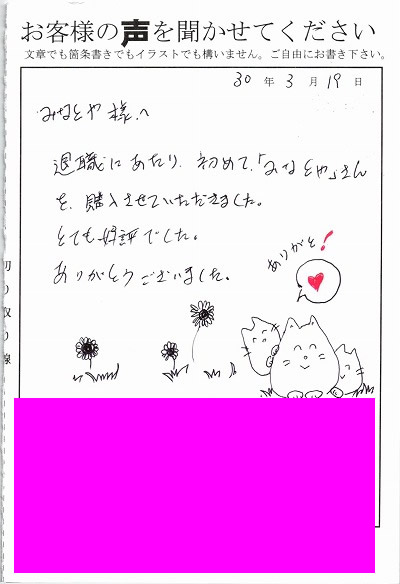 お客様の声を聞かせてください
文章でも箇条書きでもイラストでも構いません。ご自由にお書き下さい。
30年3月19日
みなとや様へ
退職にあたり、初めて、「みなとや」さん
を、購入させていただきました。
とても好評でした。
ありがとうございました。
ありがと!
切り取り線